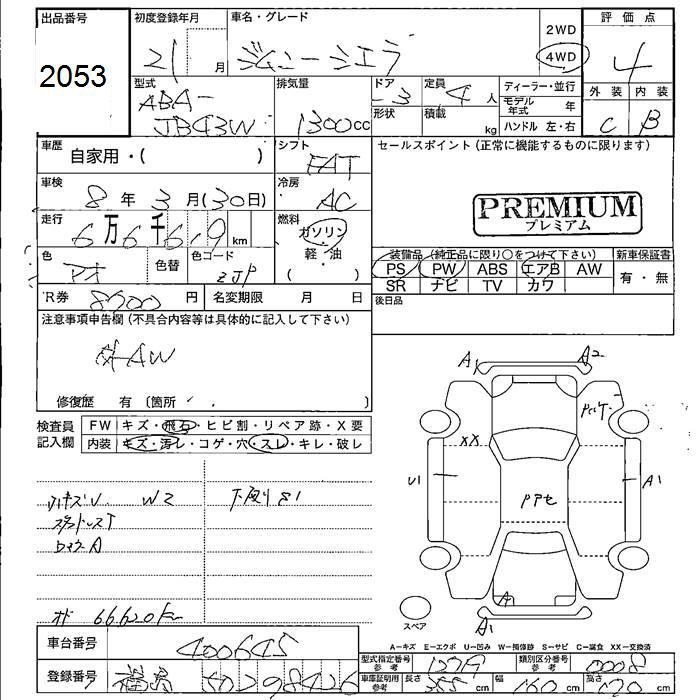 出品番号 初度登録年月 車名・グレード 評価点
2053 21 月 ジムニーシエラ 2WD 4WD 4
型式 排気量 ドア 定員 ディーラー・並行 外装 内装
ABA-JB43W 1300cc 3 4人 モデル年式 年 C B
形状 積載 kg ハンドル 左・右
車歴 自家用・( ) シフト FAT セールスポイント(正常に機能するものに限ります)
車検 8年 3月(30日) 冷房 AC
PREMIUM
プレミアム
走行 6万6千619km 燃料 ガソリン・軽・油 ( )
装備品(純正品に限り○をつけて下さい) 新車保証書
色 アオ 色替 色コード ZJP
PS PW ABS エアB AW 有・無
SR ナビ TV カワ
R券 円 名変期限 月 日 後日品
注意事項申告欄(不具合内容等は具体的に記入して下さい)
AW
修復歴 有(箇所 )
検査員記入欄 FW キズ・飛石・ヒビ割・リペア跡・X要
内装 キズ・汚レ・コゲ・穴・スレ・キレ・破レ
W2 下廻りS1
A1 A2
XX
U1 A1
A
A1
スペア
66620km
A-キズ E-エクボ U-凹み W-補修跡 S-サビ C-腐食 XX-交換済
車台番号 400645
型式指定番号 参考 類別区分番号 参考 0008
登録番号 福島
車庫証明用 参考 長さ 355cm 幅 160cm 高さ 170cm